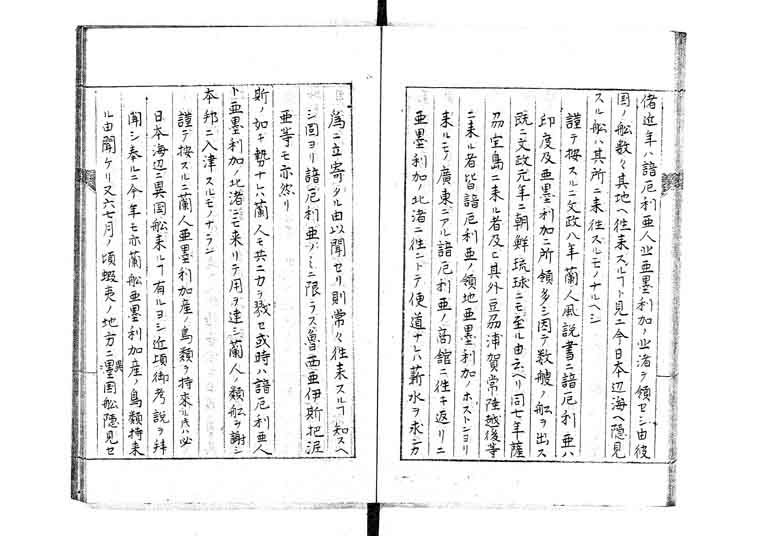 偖近年ハ諳厄利亜人北亜墨利加ノ北渚ヲ領セシ由彼
国ノ舩数々其地ヘ徃来スルヿト見ニ今日本辺海ヘ隠見
スル舩ハ其所ニ来徃スルモノナルヘシ
謹テ按スルニ文政八年蘭人風説書ニ諳厄利亜ハ
印度及亜墨利加ニ所領多シ因テ数艘ノ舩ヲ出ス
既ニ文政元年ニ朝鮮琉球ニモ至ル由云ヘリ同七年薩
刕宝島ニ来ル者及ヒ其外豆刕浦賀常陸越後等
ニ来ル者皆諳厄利亜ノ領地亜墨利加ノホストンヨリ
来ルモノ廣東ニアル諳厄利亜ノ商舘ニ徃キ返リニ
亜墨利加ノ北渚ニ徃ントテ便道ナレハ薪水ヲ求ンカ
為ニ立寄タル由以聞セリ則常々徃来スルヿ知スヘ
シ固ヨリ諳厄利亜ノミニ限ラス魯西亜伊斯把泥
亜等モ亦然リ
斯ノ如キ勢ナレハ蘭人モ共ニカヲ戮セ或時ハ諳厄利亜人
ト亜墨利加ノ北渚ニモ来リテ用ヲ達シ蘭人ノ類舩ヲ謝シ
本邦ニ入津スルモノナラン
謹テ按スルニ蘭人亜墨利加産ノ鳥類ヲ持来ル㕝ハ必
日本海辺ニ異国舩来ルヿ有ルヨシ近頃御考説ヲ拜
聞シ奉ルニ今年モ亦蘭舩亜墨利加産ノ鳥類持来
ル由聞ケリ又六七月ノ頃蝦夷ノ地方ニ異国舩隠見セ